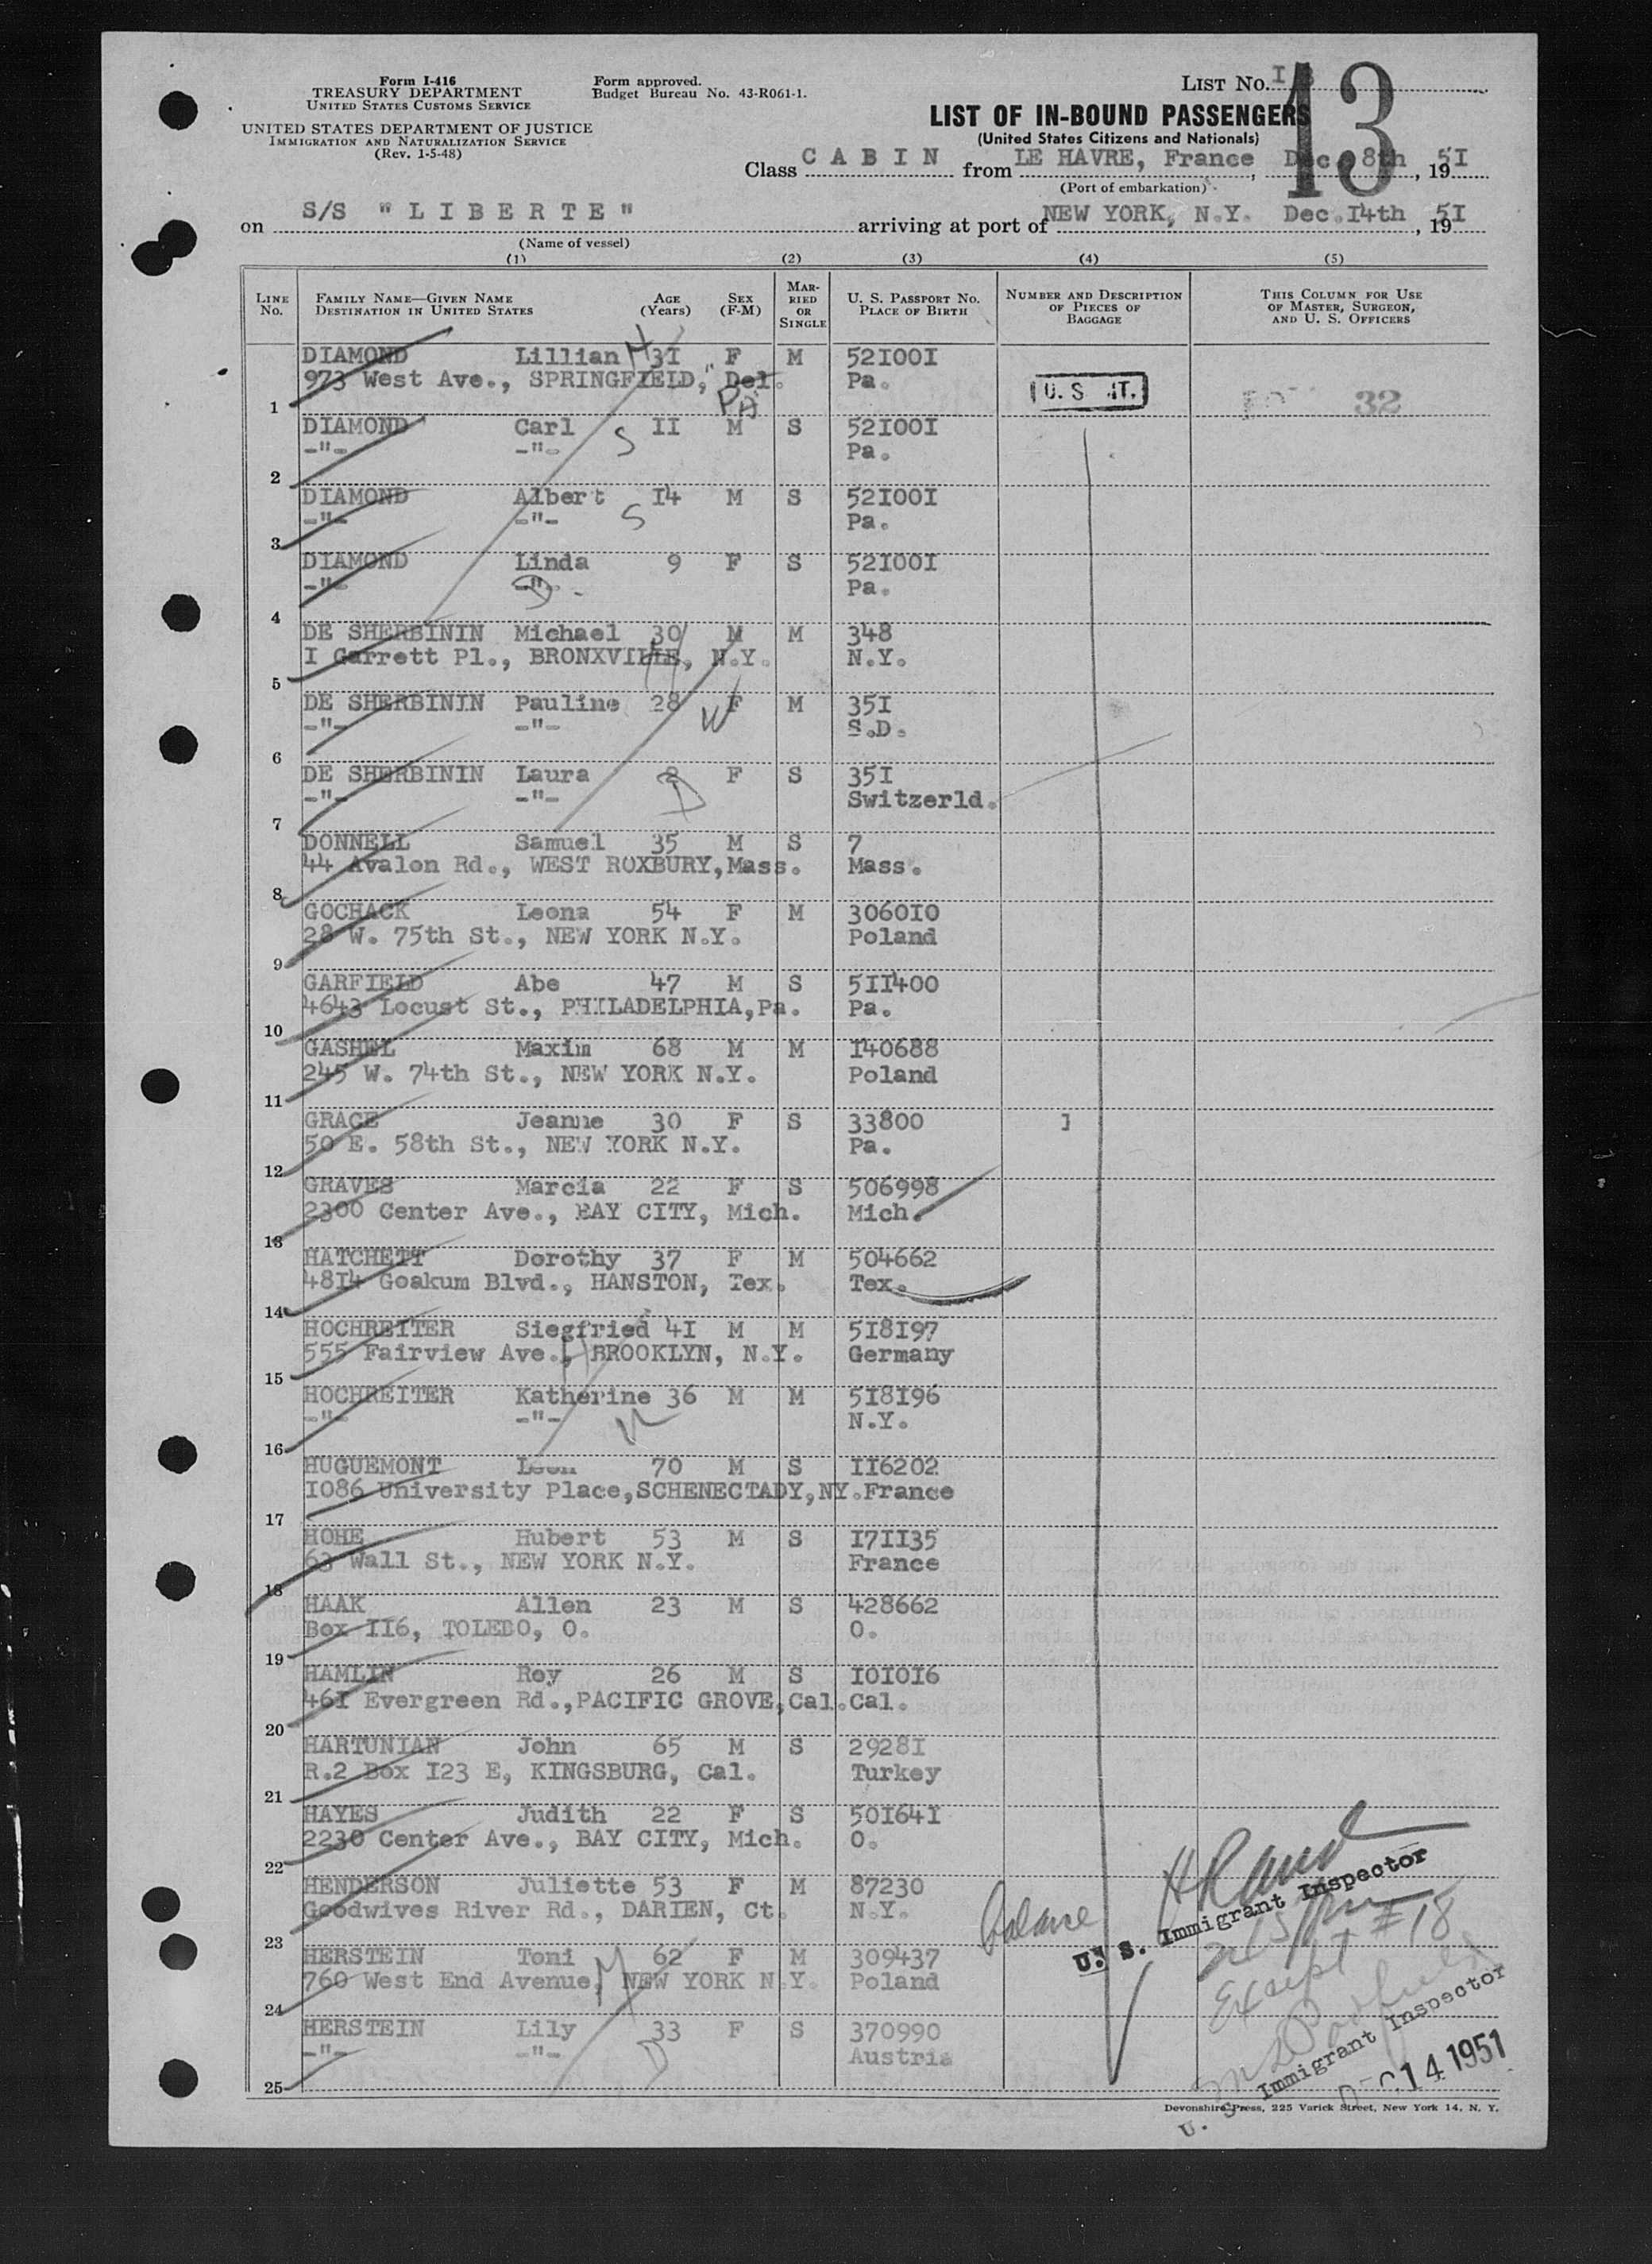 Form I-416
TREASURY DEPARTMENT
UNITED STATES CUSTOMS SERVICE
UNITED STATES DEPARTMENT OF JUSTICE
IMMIGRATION AND NATURALIZATION SERVICE
(Rev. 1-5-48)
Form approved.
Budget Bureau No. 43-R061-1.
LIST No.
13
LIST OF IN-BOUND PASSENGERS
(United States Citizens and Nationals)
Class CABIN from LE HAVRE, France, Dec. 8th, 1951
(Port of embarkation)
on S/S "LIBERTE" arriving at port of NEW YORK, N.Y. Dec.14th, 1951
(Name of vessel)
(1) (2) (3) (4) (5)
LINE No. FAMILY NAME—GIVEN NAME DESTINATION IN UNITED STATES AGE (Years) SEX (F-M) MARRIED OR SINGLE U. S. PASSPORT No. PLACE OF BIRTH NUMBER AND DESCRIPTION OF PIECES OF BAGGAGE THIS COLUMN FOR USE OF MASTER, SURGEON, AND U. S. OFFICERS
DIAMOND Lillian H 31 F M 521001
973 West Ave., SPRINGFIELD, Del. Pa.
PA
U.S. 32
1
DIAMOND Carl S II M S 521001
-"- -"- Pa.
2
DIAMOND Albert I4 M S 521001
-"- -"- S Pa.
3
DIAMOND Linda 9 F S 521001
-"- -"- D Pa.
4
DE SHERBININ Michael 30 M M 348
I Garrett Pl., BRONXVILLE, N.Y. N.Y.
5
DE SHERBININ Pauline 28 W F M 35I
-"- -"- S.D.
6
DE SHERBININ Laura 2 F S 35I
-"- -"- D Switzerld.
7
DONNELL Samuel 35 M S 7
44 Avalon Rd., WEST ROXBURY,Mass. Mass.
8
GOCHACK Leona 54 F M 306010
28 W. 75th St., NEW YORK N.Y. Poland
9
GARFIELD Abe 47 M S 5II400
4643 Locust St., PHILADELPHIA,Pa. Pa.
10
GASHEL Maxim 68 M M I40688
245 W. 74th St., NEW YORK N.Y. Poland
11
GRACE Jeanne 30 F S 33800
50 E. 58th St., NEW YORK N.Y. Pa.
12
GRAVES Marcia 22 F S 506998
2300 Center Ave., BAY CITY, Mich. Mich.
13
HATCHETT Dorothy 37 F M 504662
4814 Goakum Blvd., HANSTON, Tex. Tex.
14
HOCHREITER Siegfried 4I M M 5I8I97
555 Fairview Ave., BROOKLYN, N.Y. Germany
15
HOCHREITER Katherine 36 M M 5I8I96
-"- -"- N.Y.
16
HUGUEMONT Leon 70 M S II6202
I086 University Place,SCHENECTADY,NY. France
17
HOHE Hubert 53 M S I7II35
63 Wall St., NEW YORK N.Y. France
18
HAAK Allen 23 M S 428662
Box II6, TOLEDO, O. O.
19
HAMLIN Roy 26 M S I0I0I6
46I Evergreen Rd.,PACIFIC GROVE,Cal. Cal.
20
HARTUNIAN John 65 M S 2928I
R.2 Box I23 E, KINGSBURG, Cal. Turkey
21
HAYES Judith 22 F S 50I64I
2230 Center Ave., BAY CITY, Mich. O.
22
HENDERSON Juliette 53 F M 87230
Goodwives River Rd., DARIEN, Ct. N.Y.
23
HERSTEIN Toni 62 F M 309437
760 West End Avenue, NEW YORK N.Y. Poland
M
24
HERSTEIN Lily 33 F S 370990
-"- -"- D Austria
25
balance
U. S. Immigrant Inspector
Except #18
U. S. Immigrant Inspector
DEC 14 1951
Devonshire Press, 225 Varick Street, New York 14, N. Y.